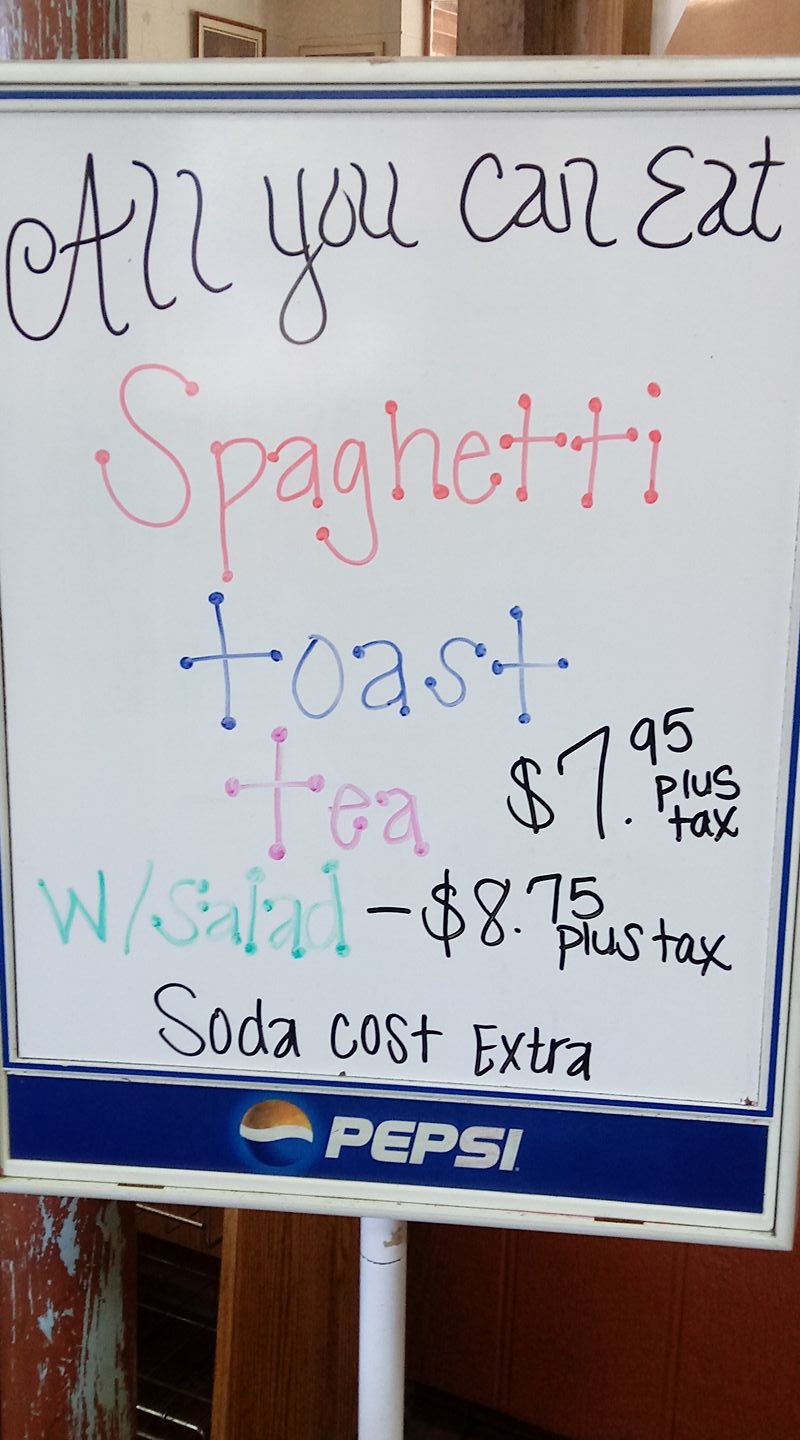 All you can Eat
Spaghetti
toast
tea $7.95 plus tax
W/Salad - $8.75 plus tax
Soda cost Extra
PEPSI